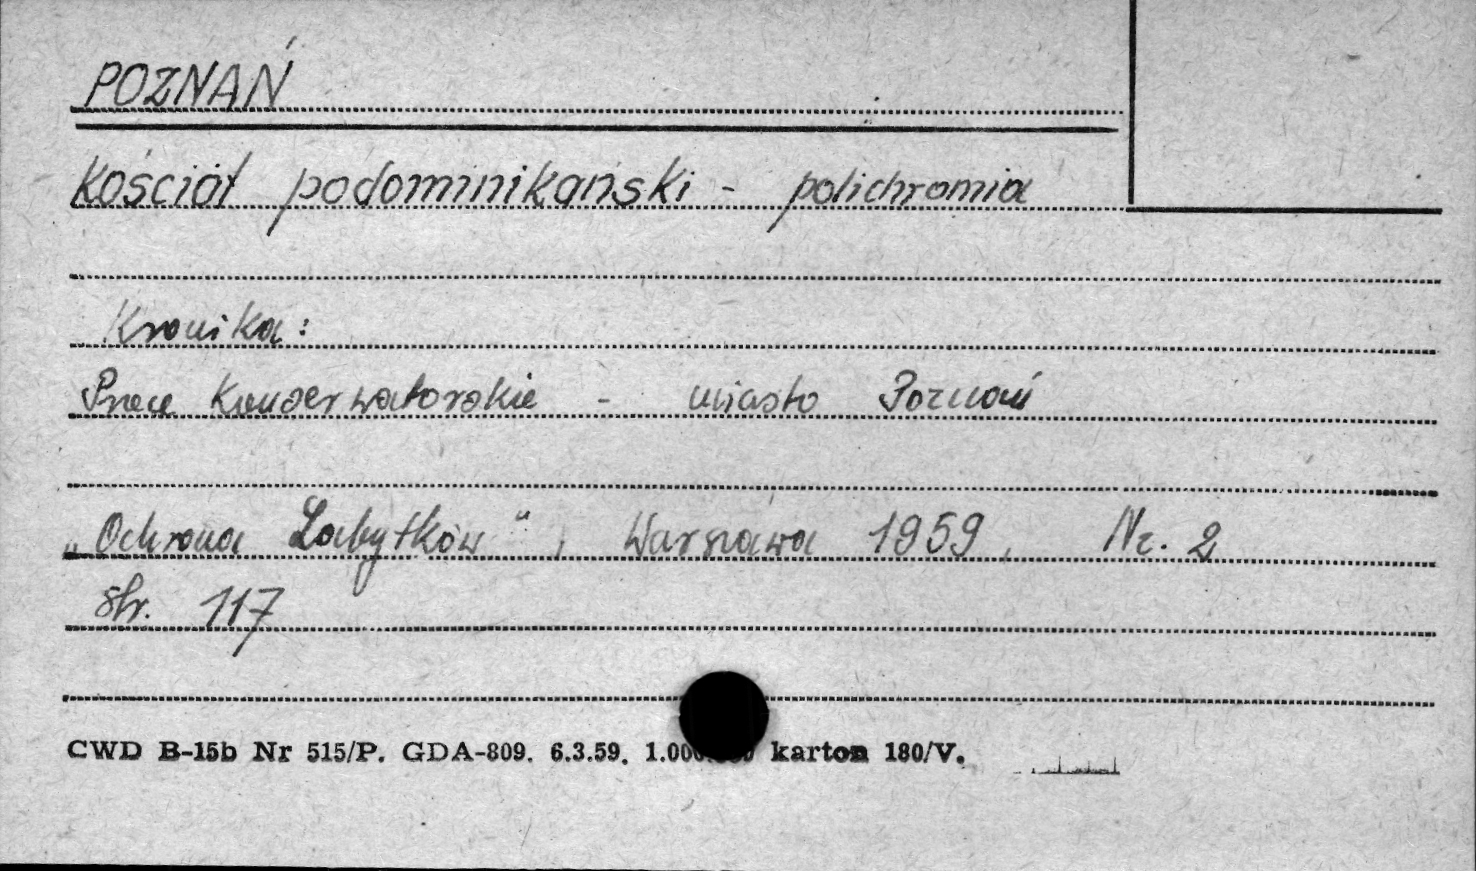 POZNAŃ
Kościół podominikański - polichromia
Kronika:
Prace Konserwatorskie - miasto Poznań
„Ochrona Zabytków", Warszawa 1959, Nr. 2
str. 117
CWD B-15b Nr 515/P. GDA-809. 6.3.59. karton 180/V.